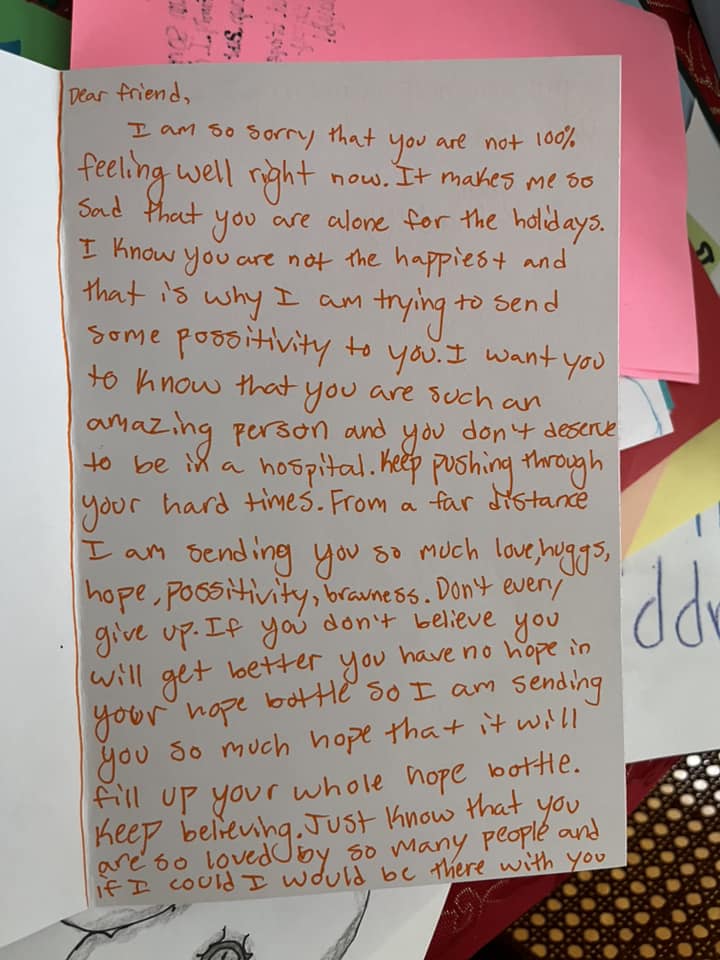 Dear friend,
I am so sorry that you are not 100%
feeling well right now. It makes me so
sad that you are alone for the holidays.
I know you are not the happiest and
that is why I am trying to send
some possitivity to you. I want you
to know that you are such an
amazing person and you don't deserve
to be in a hospital. Keep pushing through
your hard times. From a far distance
I am sending you so much love, huggs,
hope, possitivity, bravness. Don't every
give up. If you don't believe you
will get better you have no hope in
your hope bottle so I am sending
you so much hope that it will
fill up your whole hope bottle.
Keep believing. Just know that you
are so loved by so many people and
if I could I would be there with you